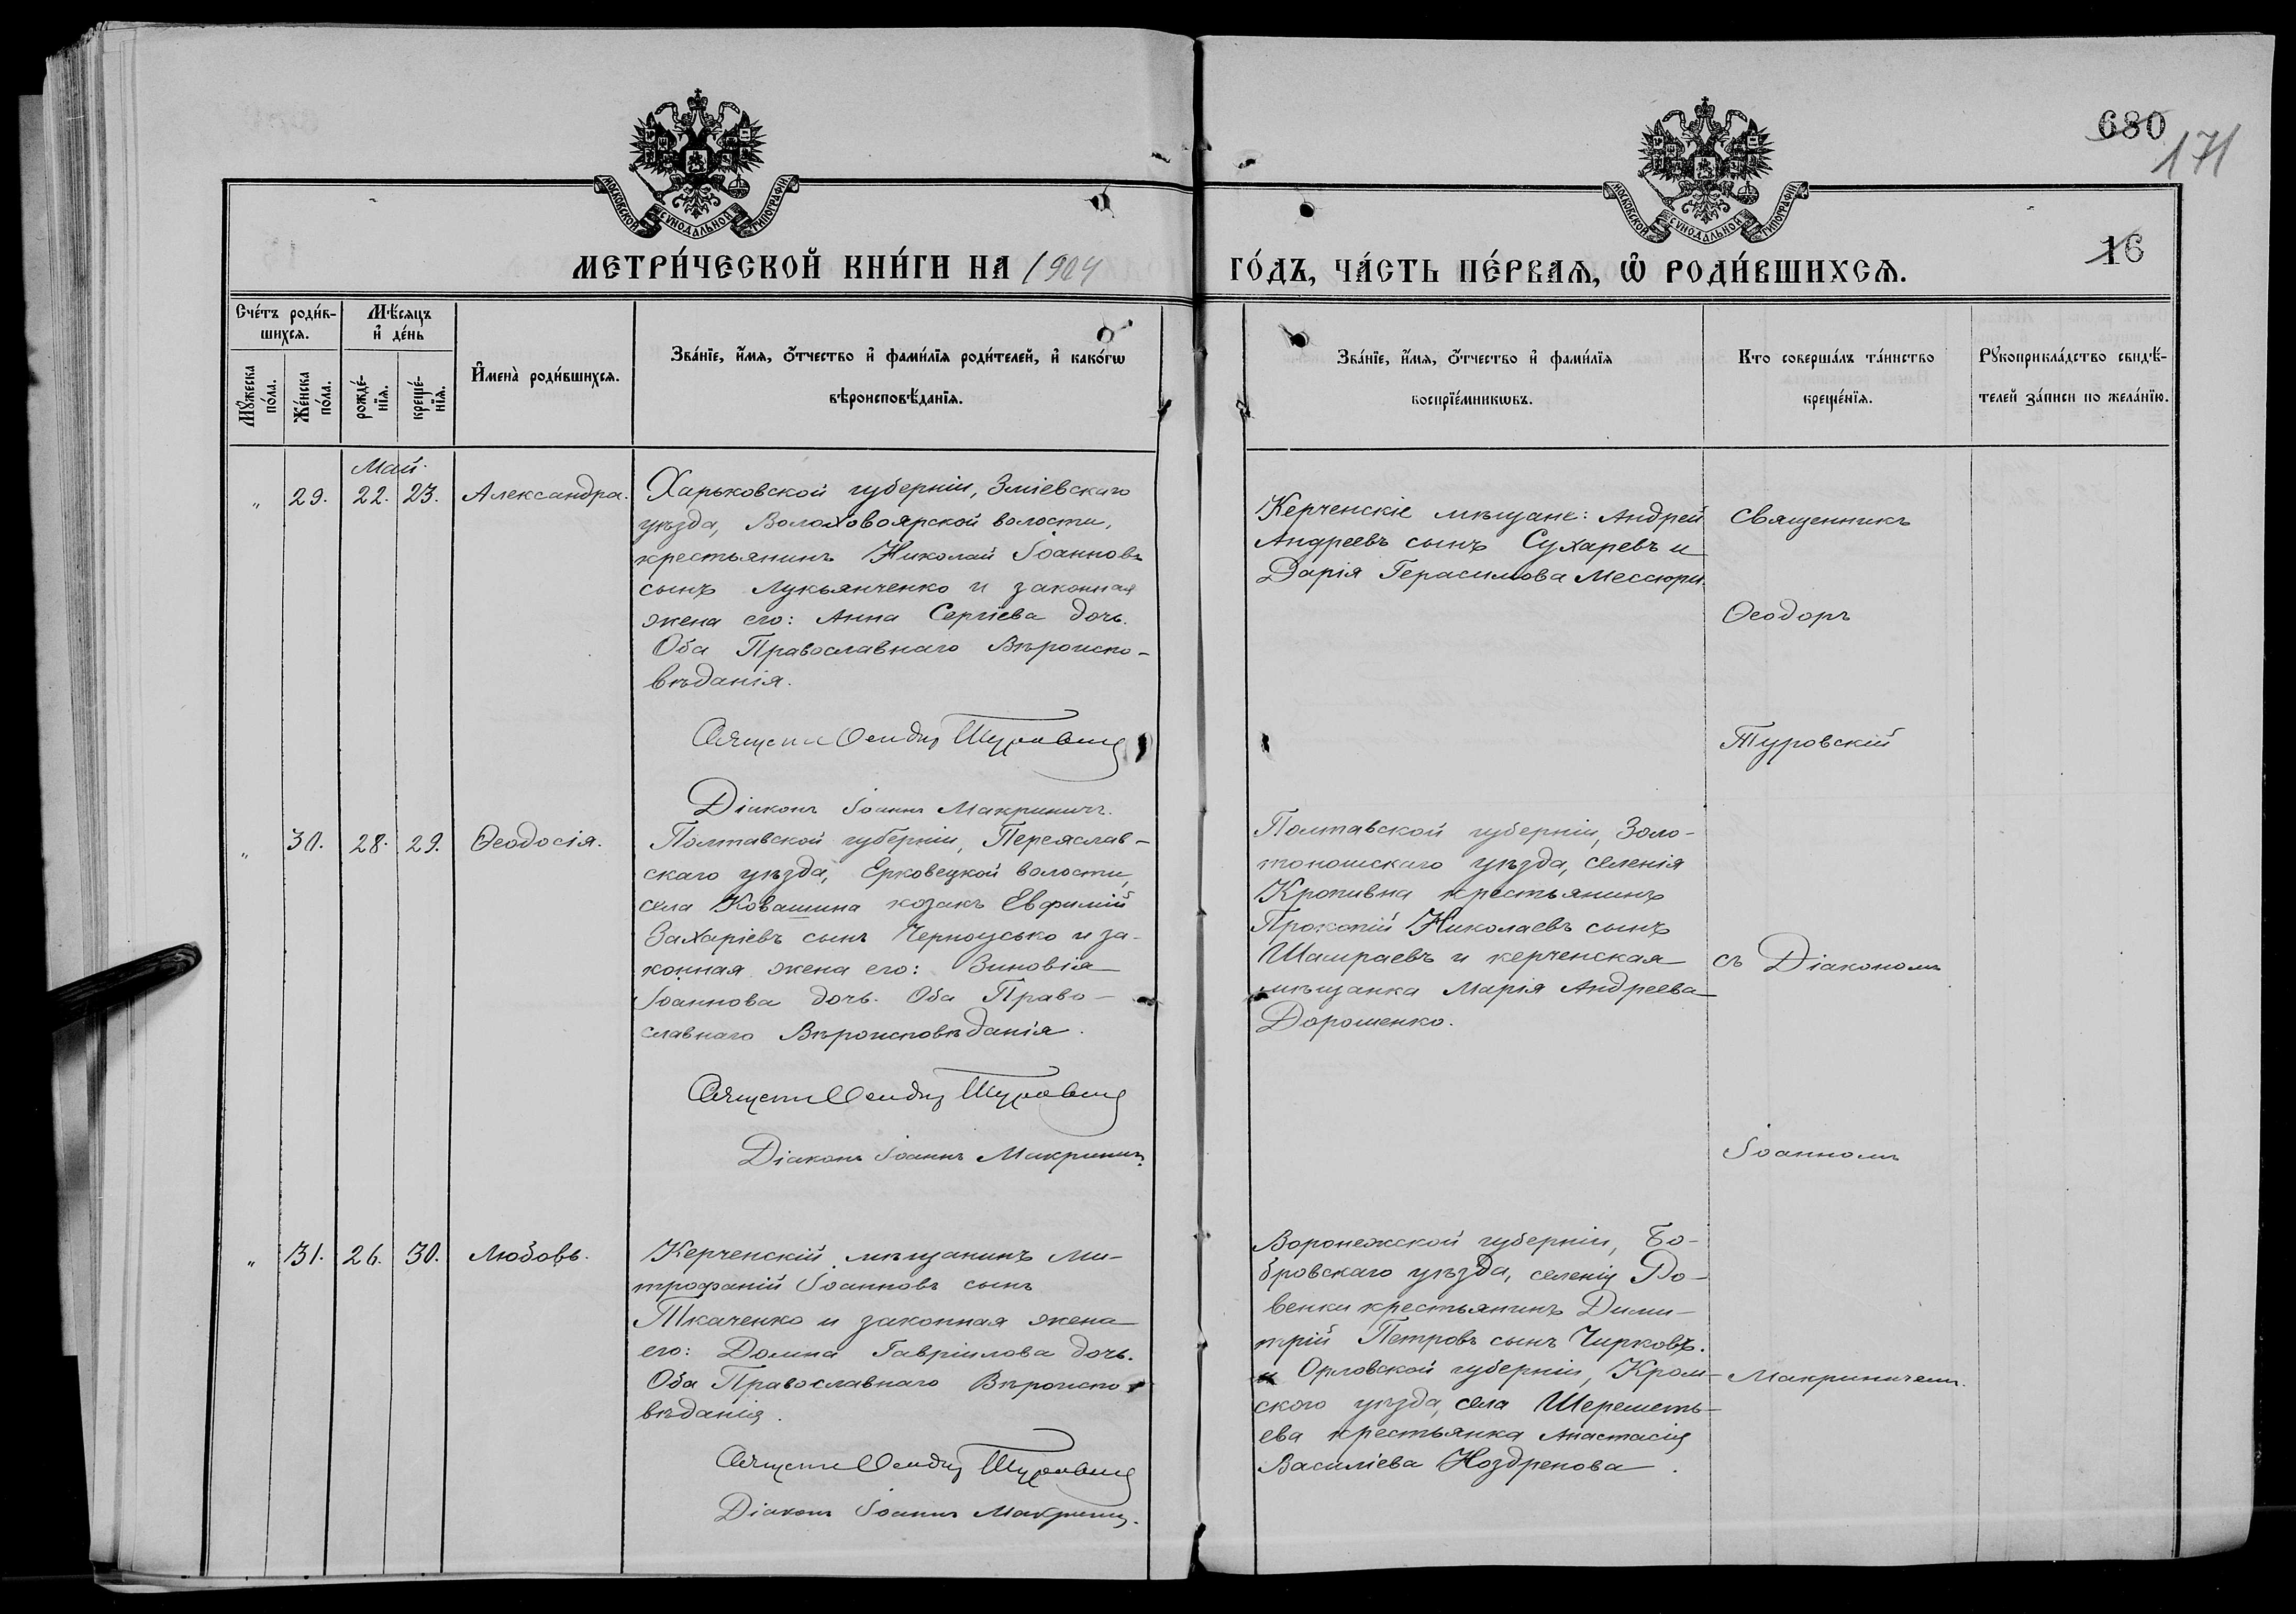 680
171
МОСКОВСКОЙ СѴНОДАЛЬНОЙ ТИПОГРАФІИ
МОСКОВСКОЙ СѴНОДАЛЬНОЙ ТИПОГРАФІИ
16
МЕТРИ́ЧЕСКОЙ КНИ́ГИ НА 1904
ГО́ДЪ, ЧА́СТЬ ПЕ́РВАЯ, Ѡ҆ РОДИ́ВШИХСѦ.
Сче́тъ роди́в-
шихсѧ.
Мꙋ́жеска по́ла.
Же́нска по́ла.
Мѣ́сяцъ
и҆ де́нь
рожде́-нїѧ.
креще́-нїѧ.
И҆мена̀ роди́вшихсѧ.
Зва́нїе, и҆́мѧ, ѻ҆́тчество и҆ фами́лїѧ роди́телей, и҆ како́гѡ
вѣроисповѣ́данїѧ.
Зва́нїе, и҆́мѧ, ѻ҆́тчество и҆ фами́лїѧ
воспрїе́мникѡвъ.
Кто соверша́лъ та́инство
креще́нїѧ.
Рꙋкоприкла́дство свидѣ́-
телей за́писи по жела́нїю.
Май.
" 29. 22. 23. Александра.
Харьковской губерніи, Зміевскаго
уѣзда, Волоховоярской волости,
крестьянинъ Николай Іоанновъ
сынъ Лукьянченко и законная
жена его: Анна Сергіева дочь.
Оба Православнаго Вѣроиспо-
вѣданія.
Священн Ѳеодоръ Туровскій
Діаконъ Іоаннъ Макриничъ.
Керченскіе мѣщане: Андрей
Андреевъ сынъ Сухаревъ и
Дарія Герасимова Мессюри.
Священникъ
Ѳеодоръ
Туровскій
" 30. 28. 29. Ѳеодосія.
Полтавской губерніи, Переяслав-
скаго уѣзда, Ерковецкой волости,
села Ковашина козакъ Евфимій
Захаріевъ сынъ Черноусько и за-
конная жена его: Зиновія
Іоаннова дочь. Оба Право-
славнаго Вѣроисповѣданія.
Священн Ѳеодоръ Туровскій
Діаконъ Іоаннъ Макриничъ.
Полтавской губерніи, Золо-
тоношскаго уѣзда, селенія
Кропивна крестьянинъ
Прокопій Николаевъ сынъ
Шашраевъ и керченская
мѣщанка Марія Андреева
Дорошенко.
съ Діакономъ
Іоанномъ
" 31. 26. 30. Любовь.
Керченскій мѣщанинъ Ми-
трофаній Іоанновъ сынъ
Ткаченко и законная жена
его: Домна Гавріилова дочь.
Оба Православнаго Вѣроиспо-
вѣданія.
Священн Ѳеодоръ Туровскій
Діаконъ Іоаннъ Макриничъ.
Воронежской губерніи, Бо-
бровскаго уѣзда, селенія
венки крестьянинъ Дими-
трій Петровъ сынъ Чирковъ.
и Орловской губерніи, Кром-
ского уѣзда, села Шереметь-
ева крестьянка Анастасія
Василіева Ноздренова.
Макриничемъ.